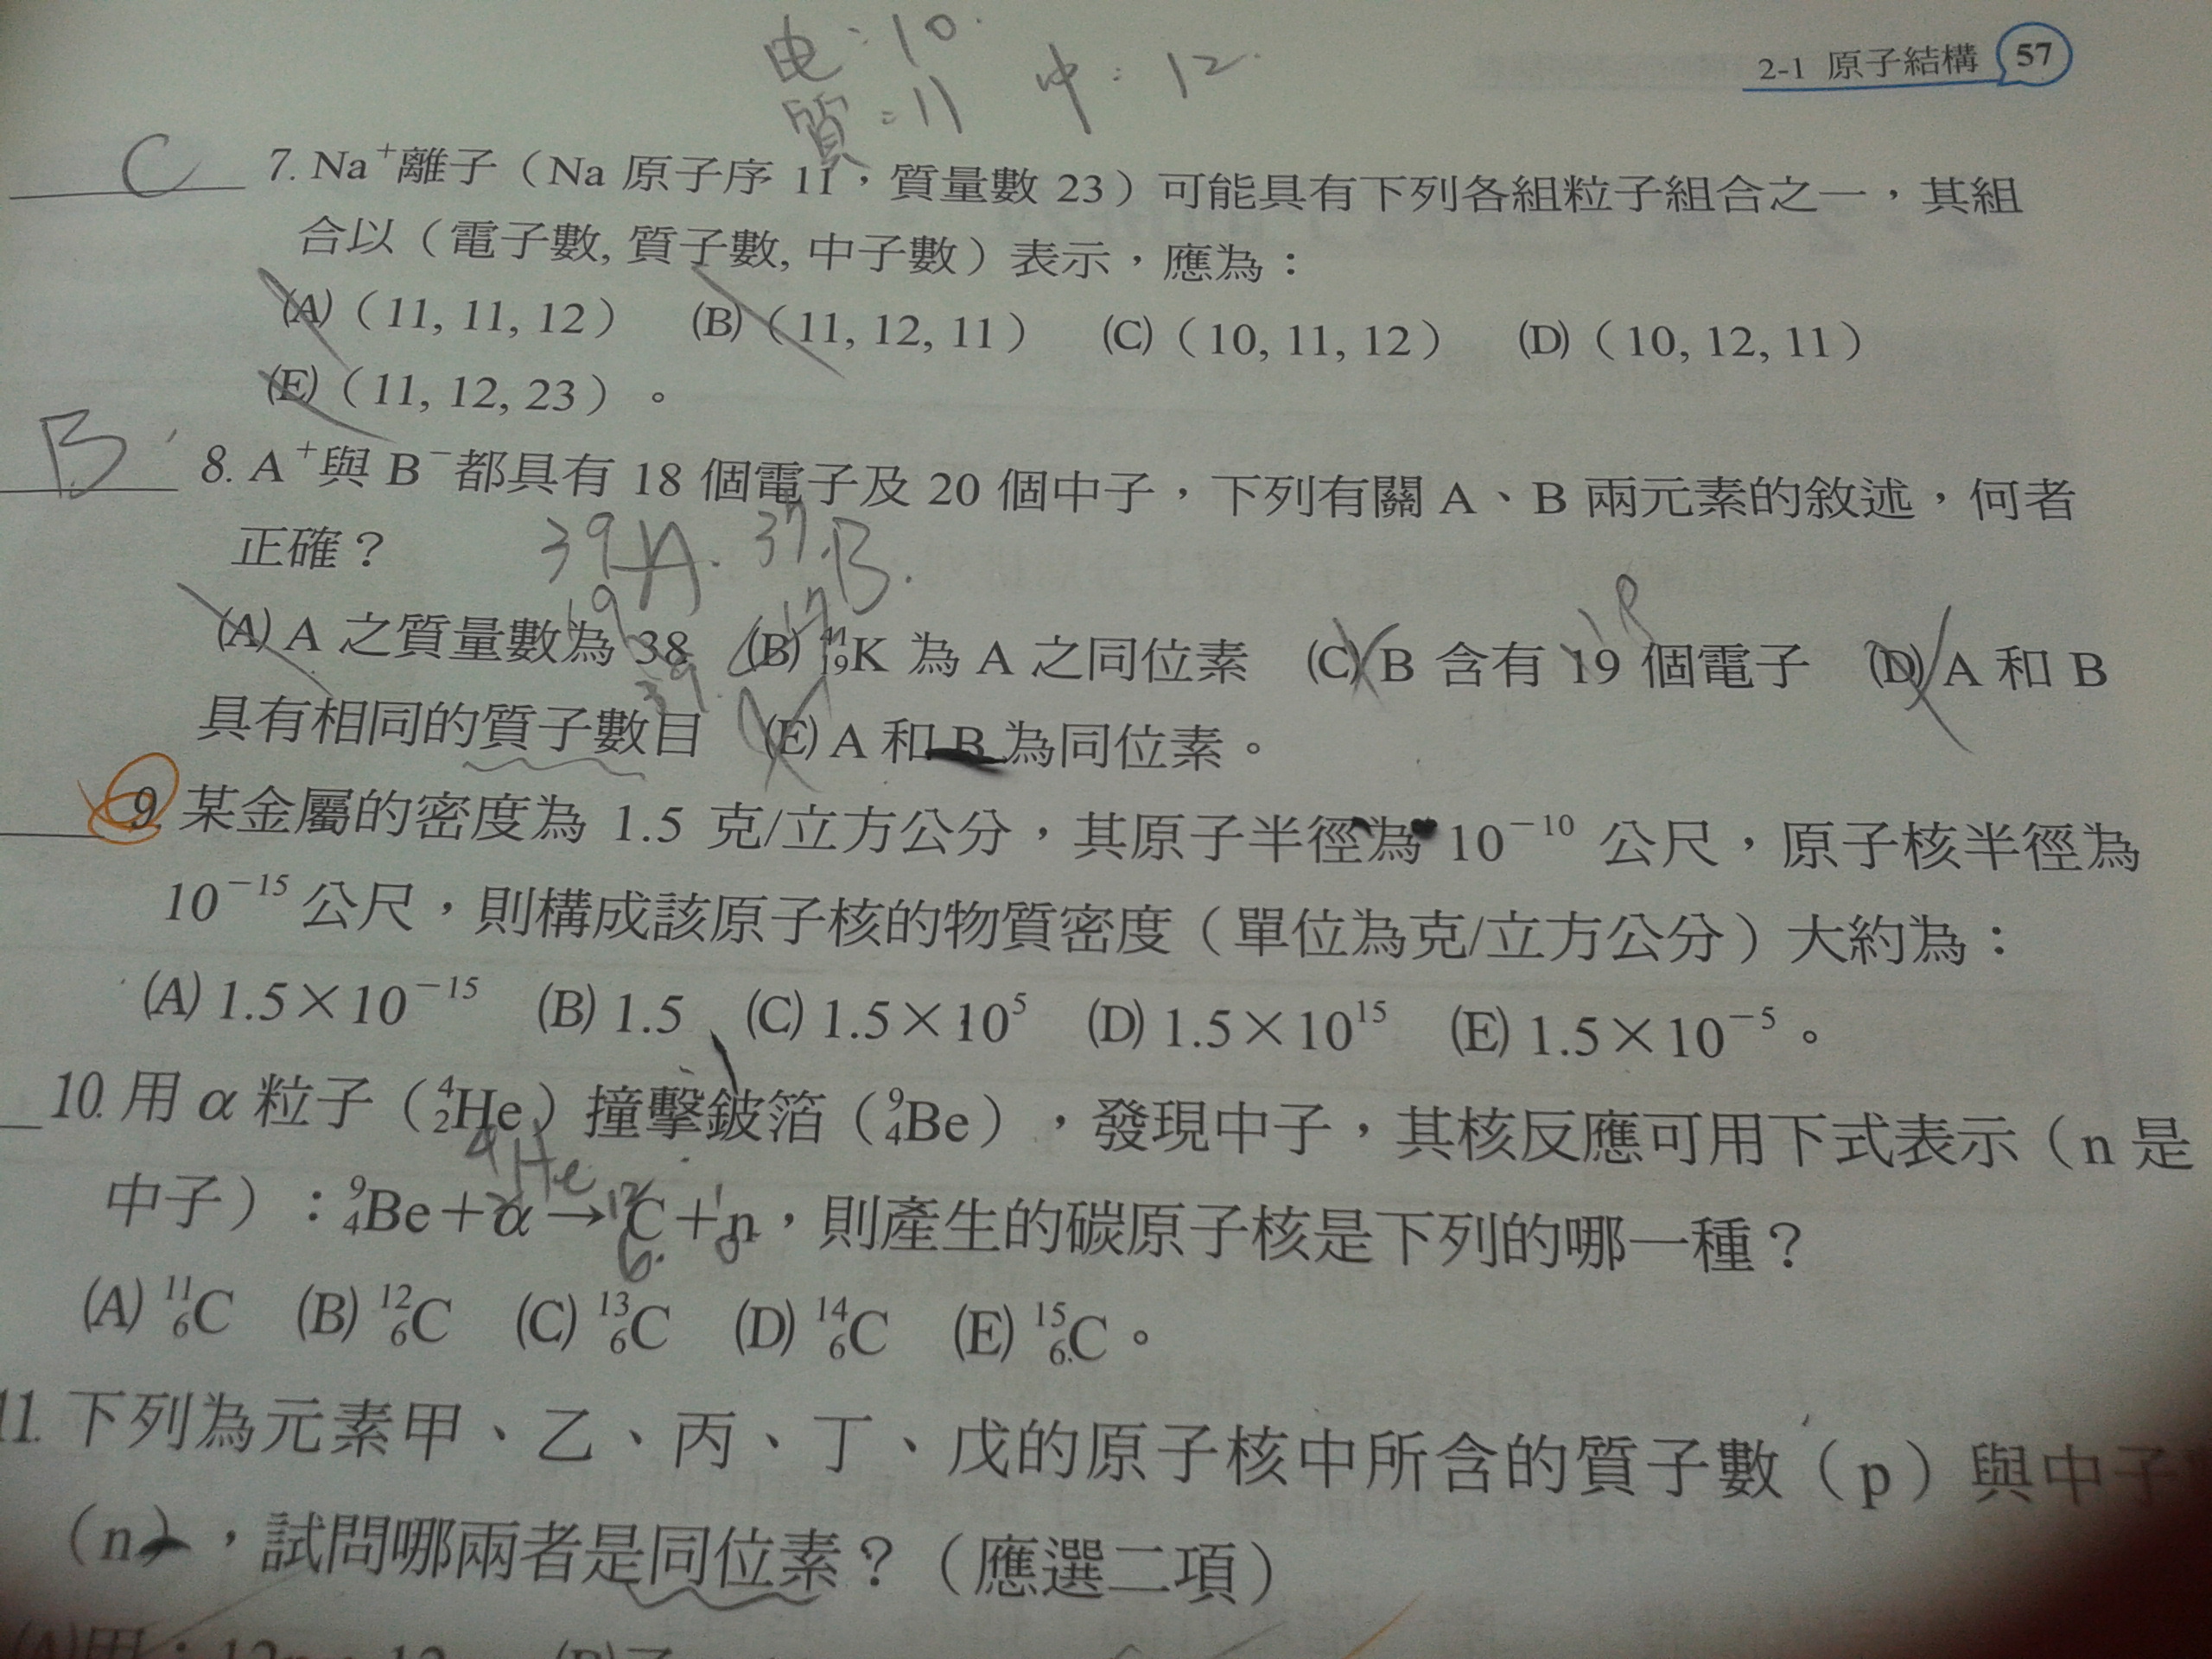 电:10.
質:11 中:12.
2-1 原子結構 57
C 7. Na⁺離子(Na 原子序 11,質量數 23)可能具有下列各組粒子組合之一,其組
合以(電子數, 質子數, 中子數)表示,應為:
(A)(11, 11, 12) (B)(11, 12, 11) (C)(10, 11, 12) (D)(10, 12, 11)
(E)(11, 12, 23)。
B 8. A⁺與 B⁻都具有 18 個電子及 20 個中子,下列有關 A、B 兩元素的敘述,何者
正確? ³⁹₁₉A. ³⁷₁₇B.
(A) A 之質量數為 38 (B) ⁴¹₁₉K 為 A 之同位素 (C) B 含有 19 個電子 (D) A 和 B
39. 18
具有相同的質子數目 (E) A 和 B 為同位素。
9. 某金屬的密度為 1.5 克/立方公分,其原子半徑為 10⁻¹⁰ 公尺,原子核半徑為
10⁻¹⁵ 公尺,則構成該原子核的物質密度(單位為克/立方公分)大約為:
(A) 1.5×10⁻¹⁵ (B) 1.5 (C) 1.5×10⁵ (D) 1.5×10¹⁵ (E) 1.5×10⁻⁵。
10. 用 α 粒子(⁴₂He)撞擊鈹箔(⁹₄Be),發現中子,其核反應可用下式表示(n 是
⁴₂He
中子):⁹₄Be+α→¹²₆C+¹₀n,則產生的碳原子核是下列的哪一種?
(A) ¹¹₆C (B) ¹²₆C (C) ¹³₆C (D) ¹⁴₆C (E) ¹⁵₆C。
11. 下列為元素甲、乙、丙、丁、戊的原子核中所含的質子數(p)與中子
(n),試問哪兩者是同位素?(應選二項)
(A)甲:12p